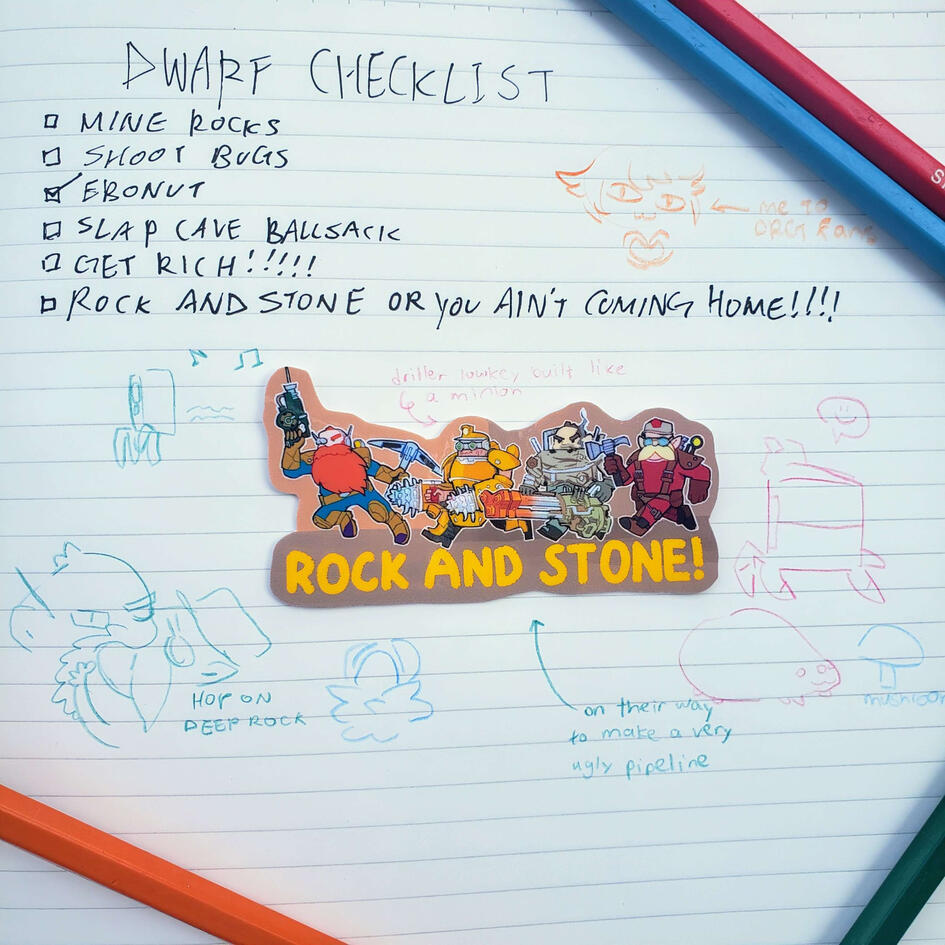 DWARF CHECKLIST
MINE ROCKS
SHOOT BUGS
EBONUT
SLAP CAVE BALLSACK
GET RICH!!!!!
ROCK AND STONE OR YOU AIN'T COMING HOME!!!!
me to
DRG fans
driller lowkey built like
a minion
ROCK AND STONE!
HOP ON
DEEP ROCK
on their way
to make a very
ugly pipeline
mushroom
S